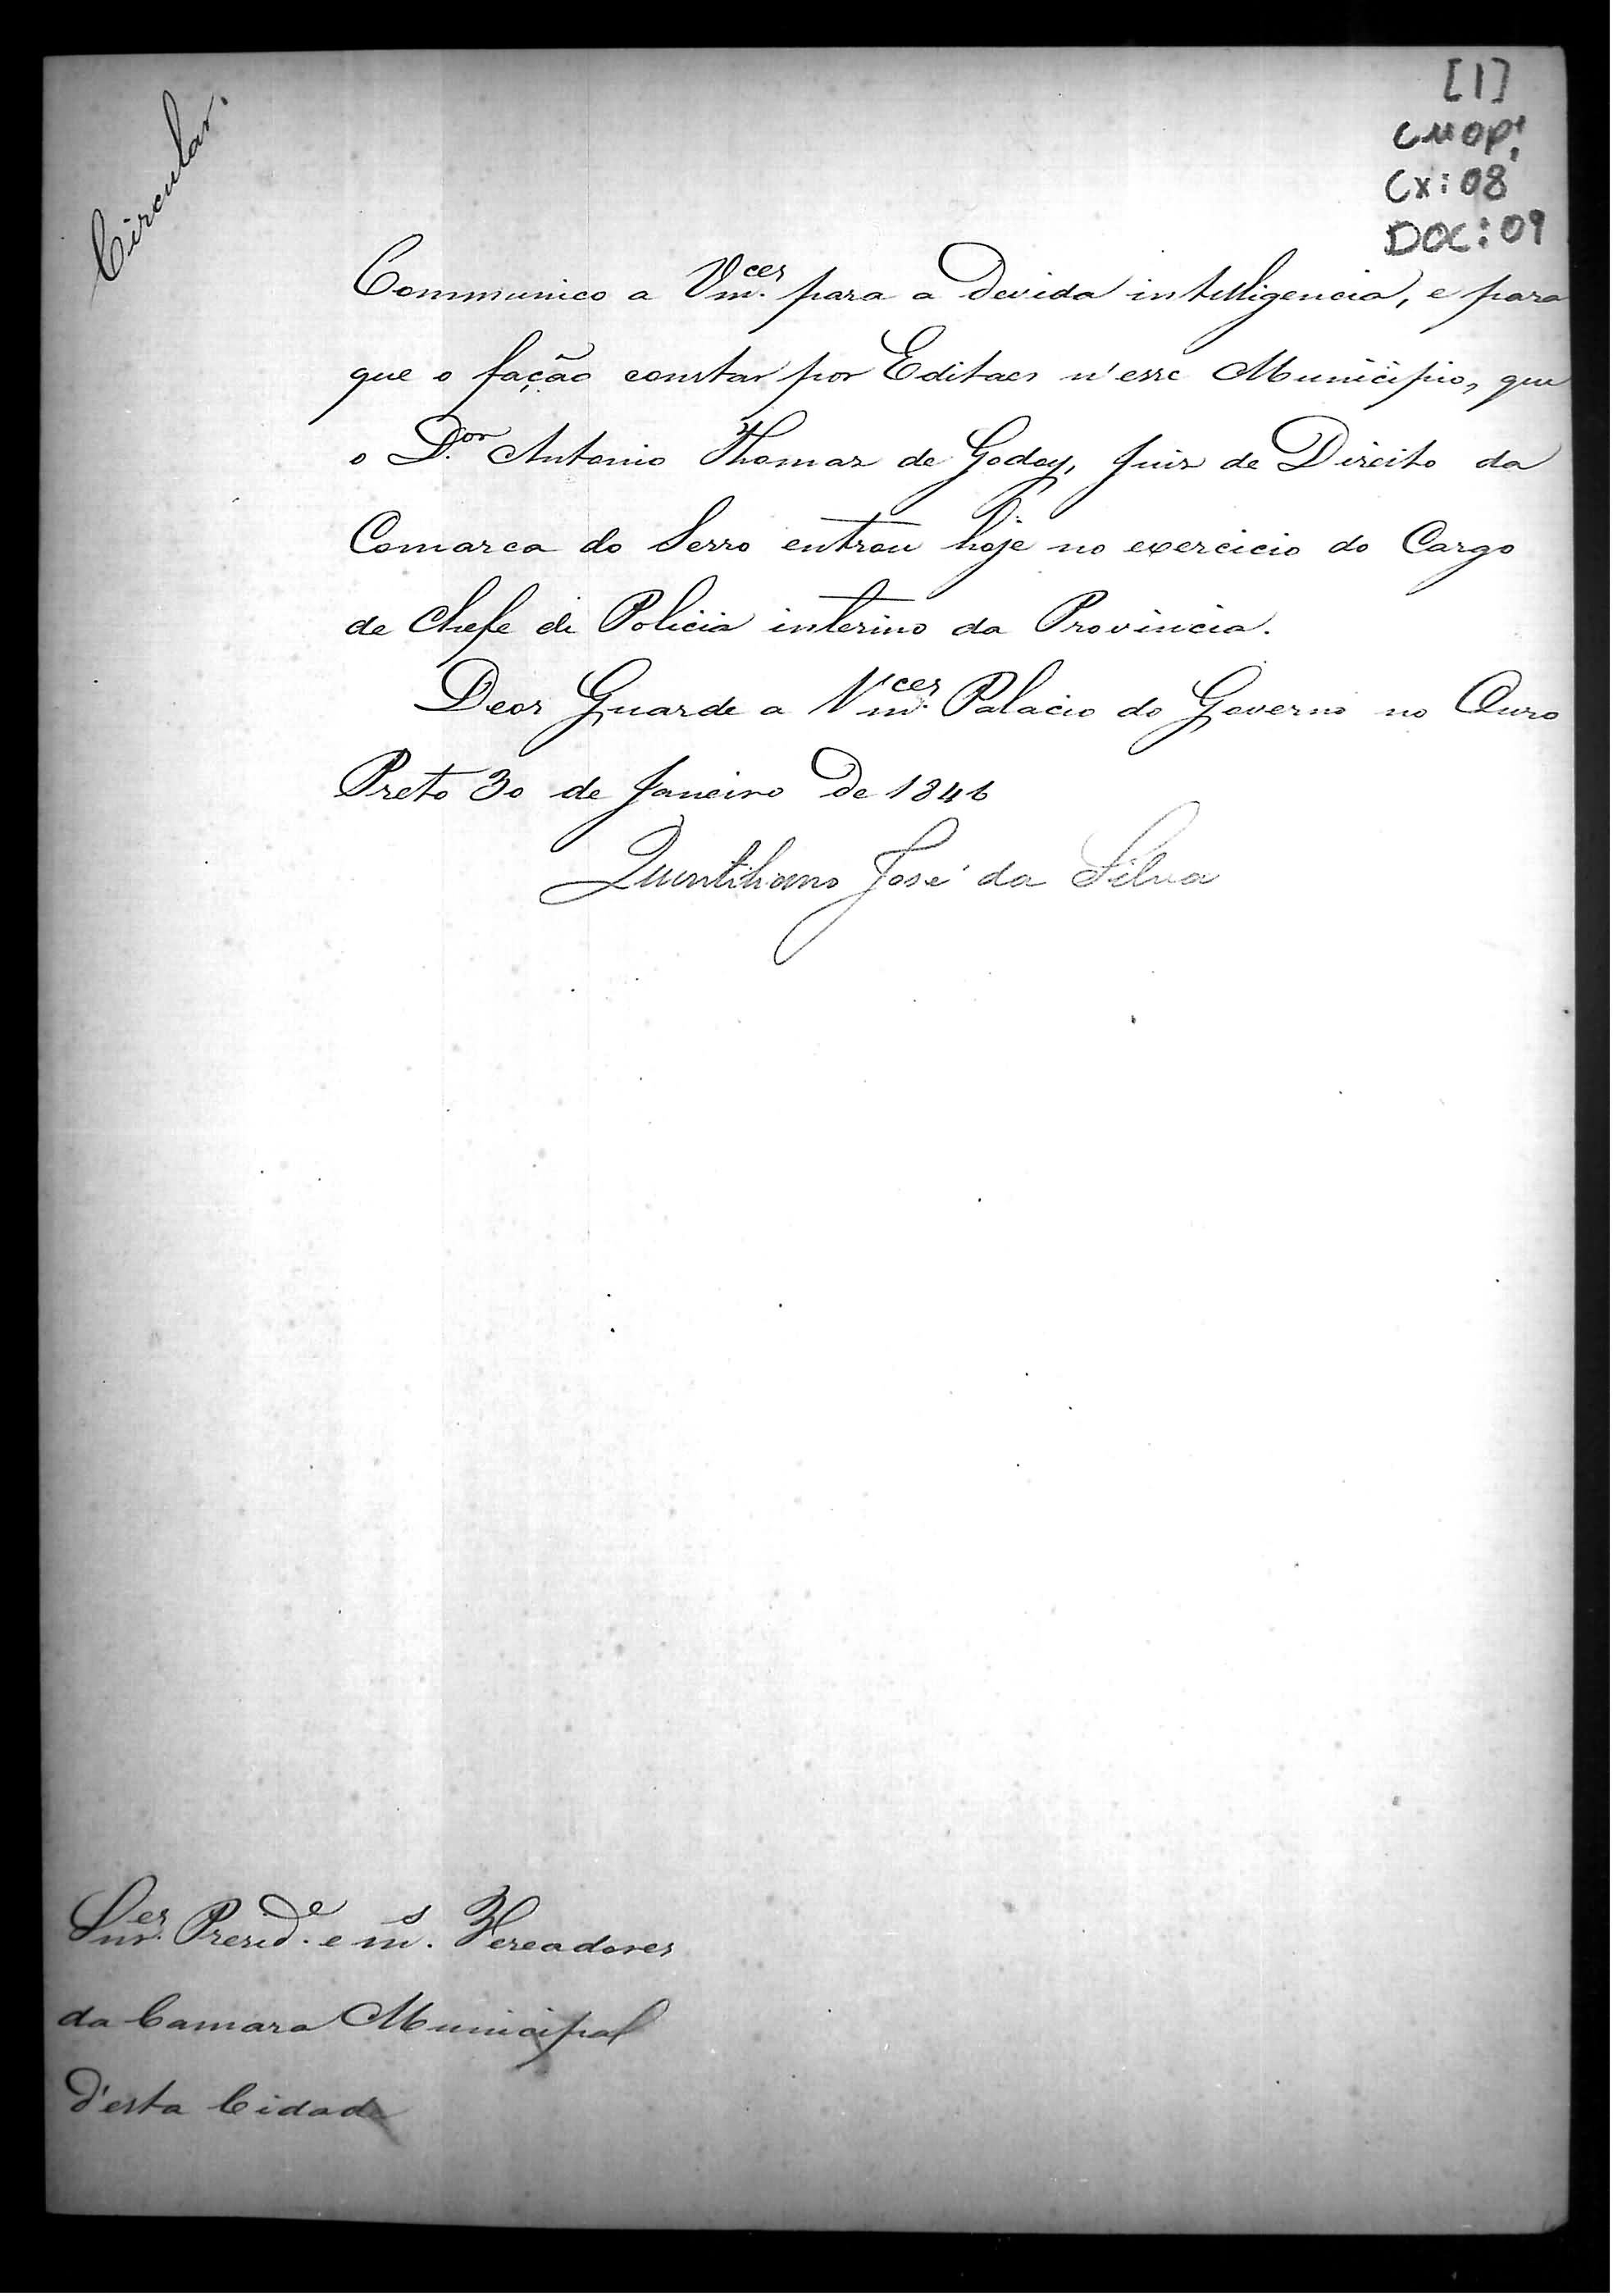 Circular.
[1]
CMOP.
Cx: 08
DOC: 09
Communico a Vm.ces para a devida intelligencia, e para
que o fação constar por Editaes n'esse Municipio, que
o D.or Antonio Thomaz de Godoy, Juiz de Direito da
Comarca do Serro entrou hoje no exercicio do Cargo
de Chefe de Policia interino da Provincia.
Deos Guarde a Vm.ces Palacio do Governo no Ouro
Preto 30 de Janeiro de 1846
Quintiliano José da Silva
Snr.es Presid.e e m.s Vereadores
da Camara Municipal
d'esta Cidade